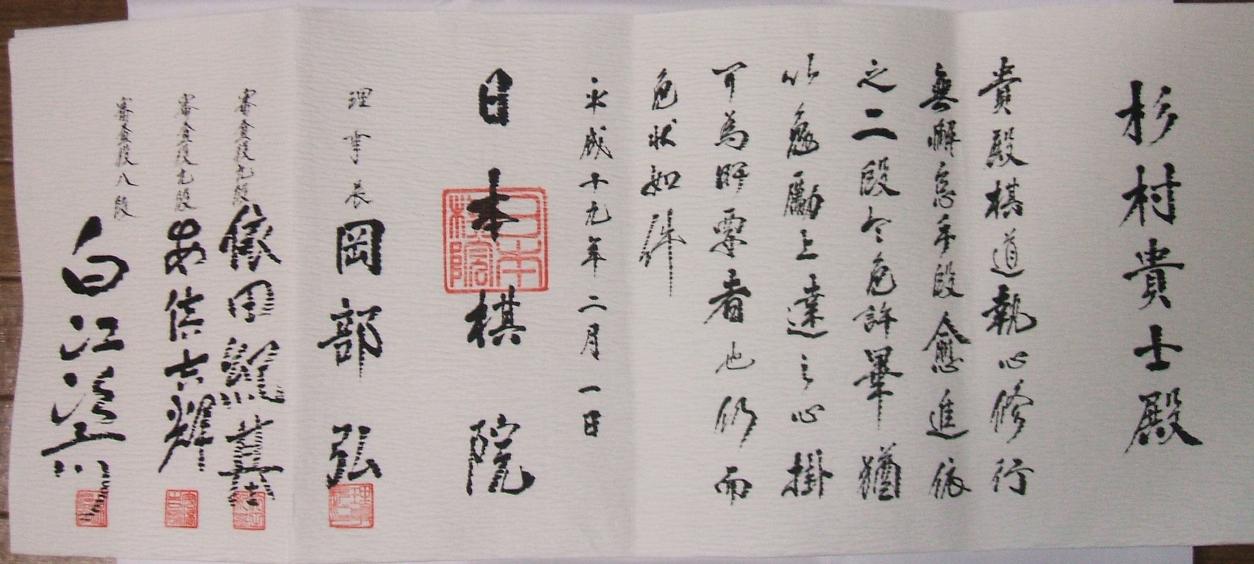 杉村貴士殿
貴殿棋道執心修行
無懈怠手段愈進依
之二段令免許畢猶
以勉勵上達之心掛
可為肝要者也仍而
免状如件
平成十九年二月一日
日本棋院
日本棋院
理事長 岡部弘
審査役九段 依田紀基
審査役九段 安倍吉輝
審査役八段 白江治彦